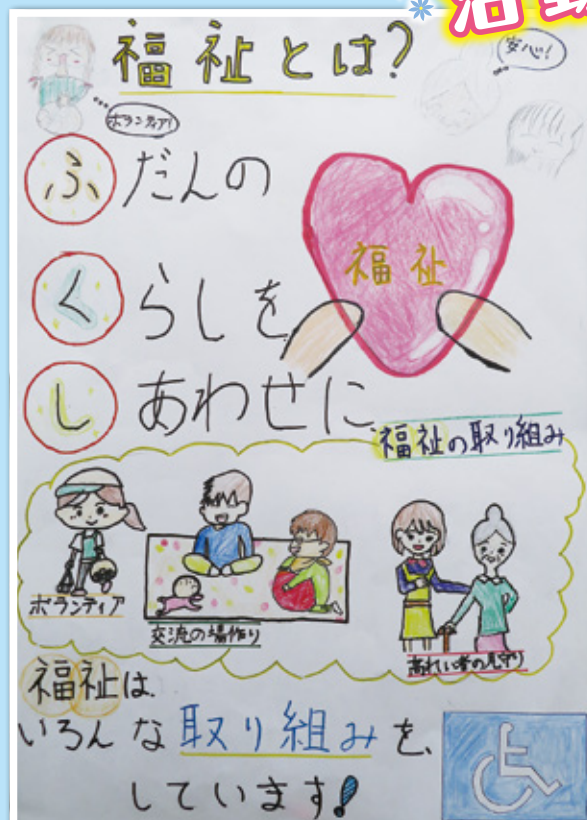 活動
福祉とは?
安心!
ボランティア!
ふだんの
くらしを
しあわせに
福祉
福祉の取り組み
ボランティア
交流の場作り
高れい者の見守り
福祉は
いろんな取り組みを
しています!